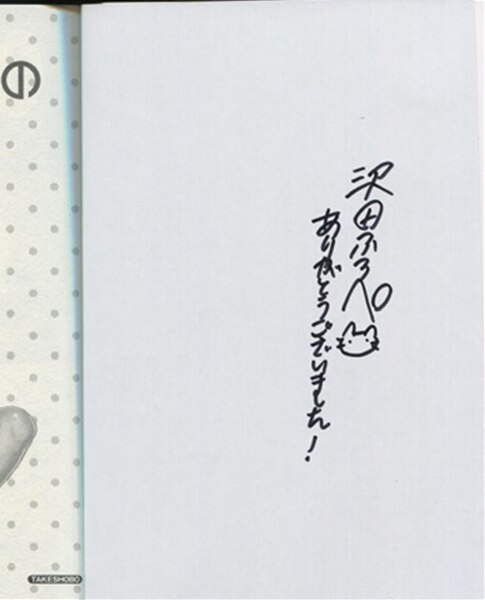 沢田ふろぺ
ありがとうございました!
の
TAKESHOBO